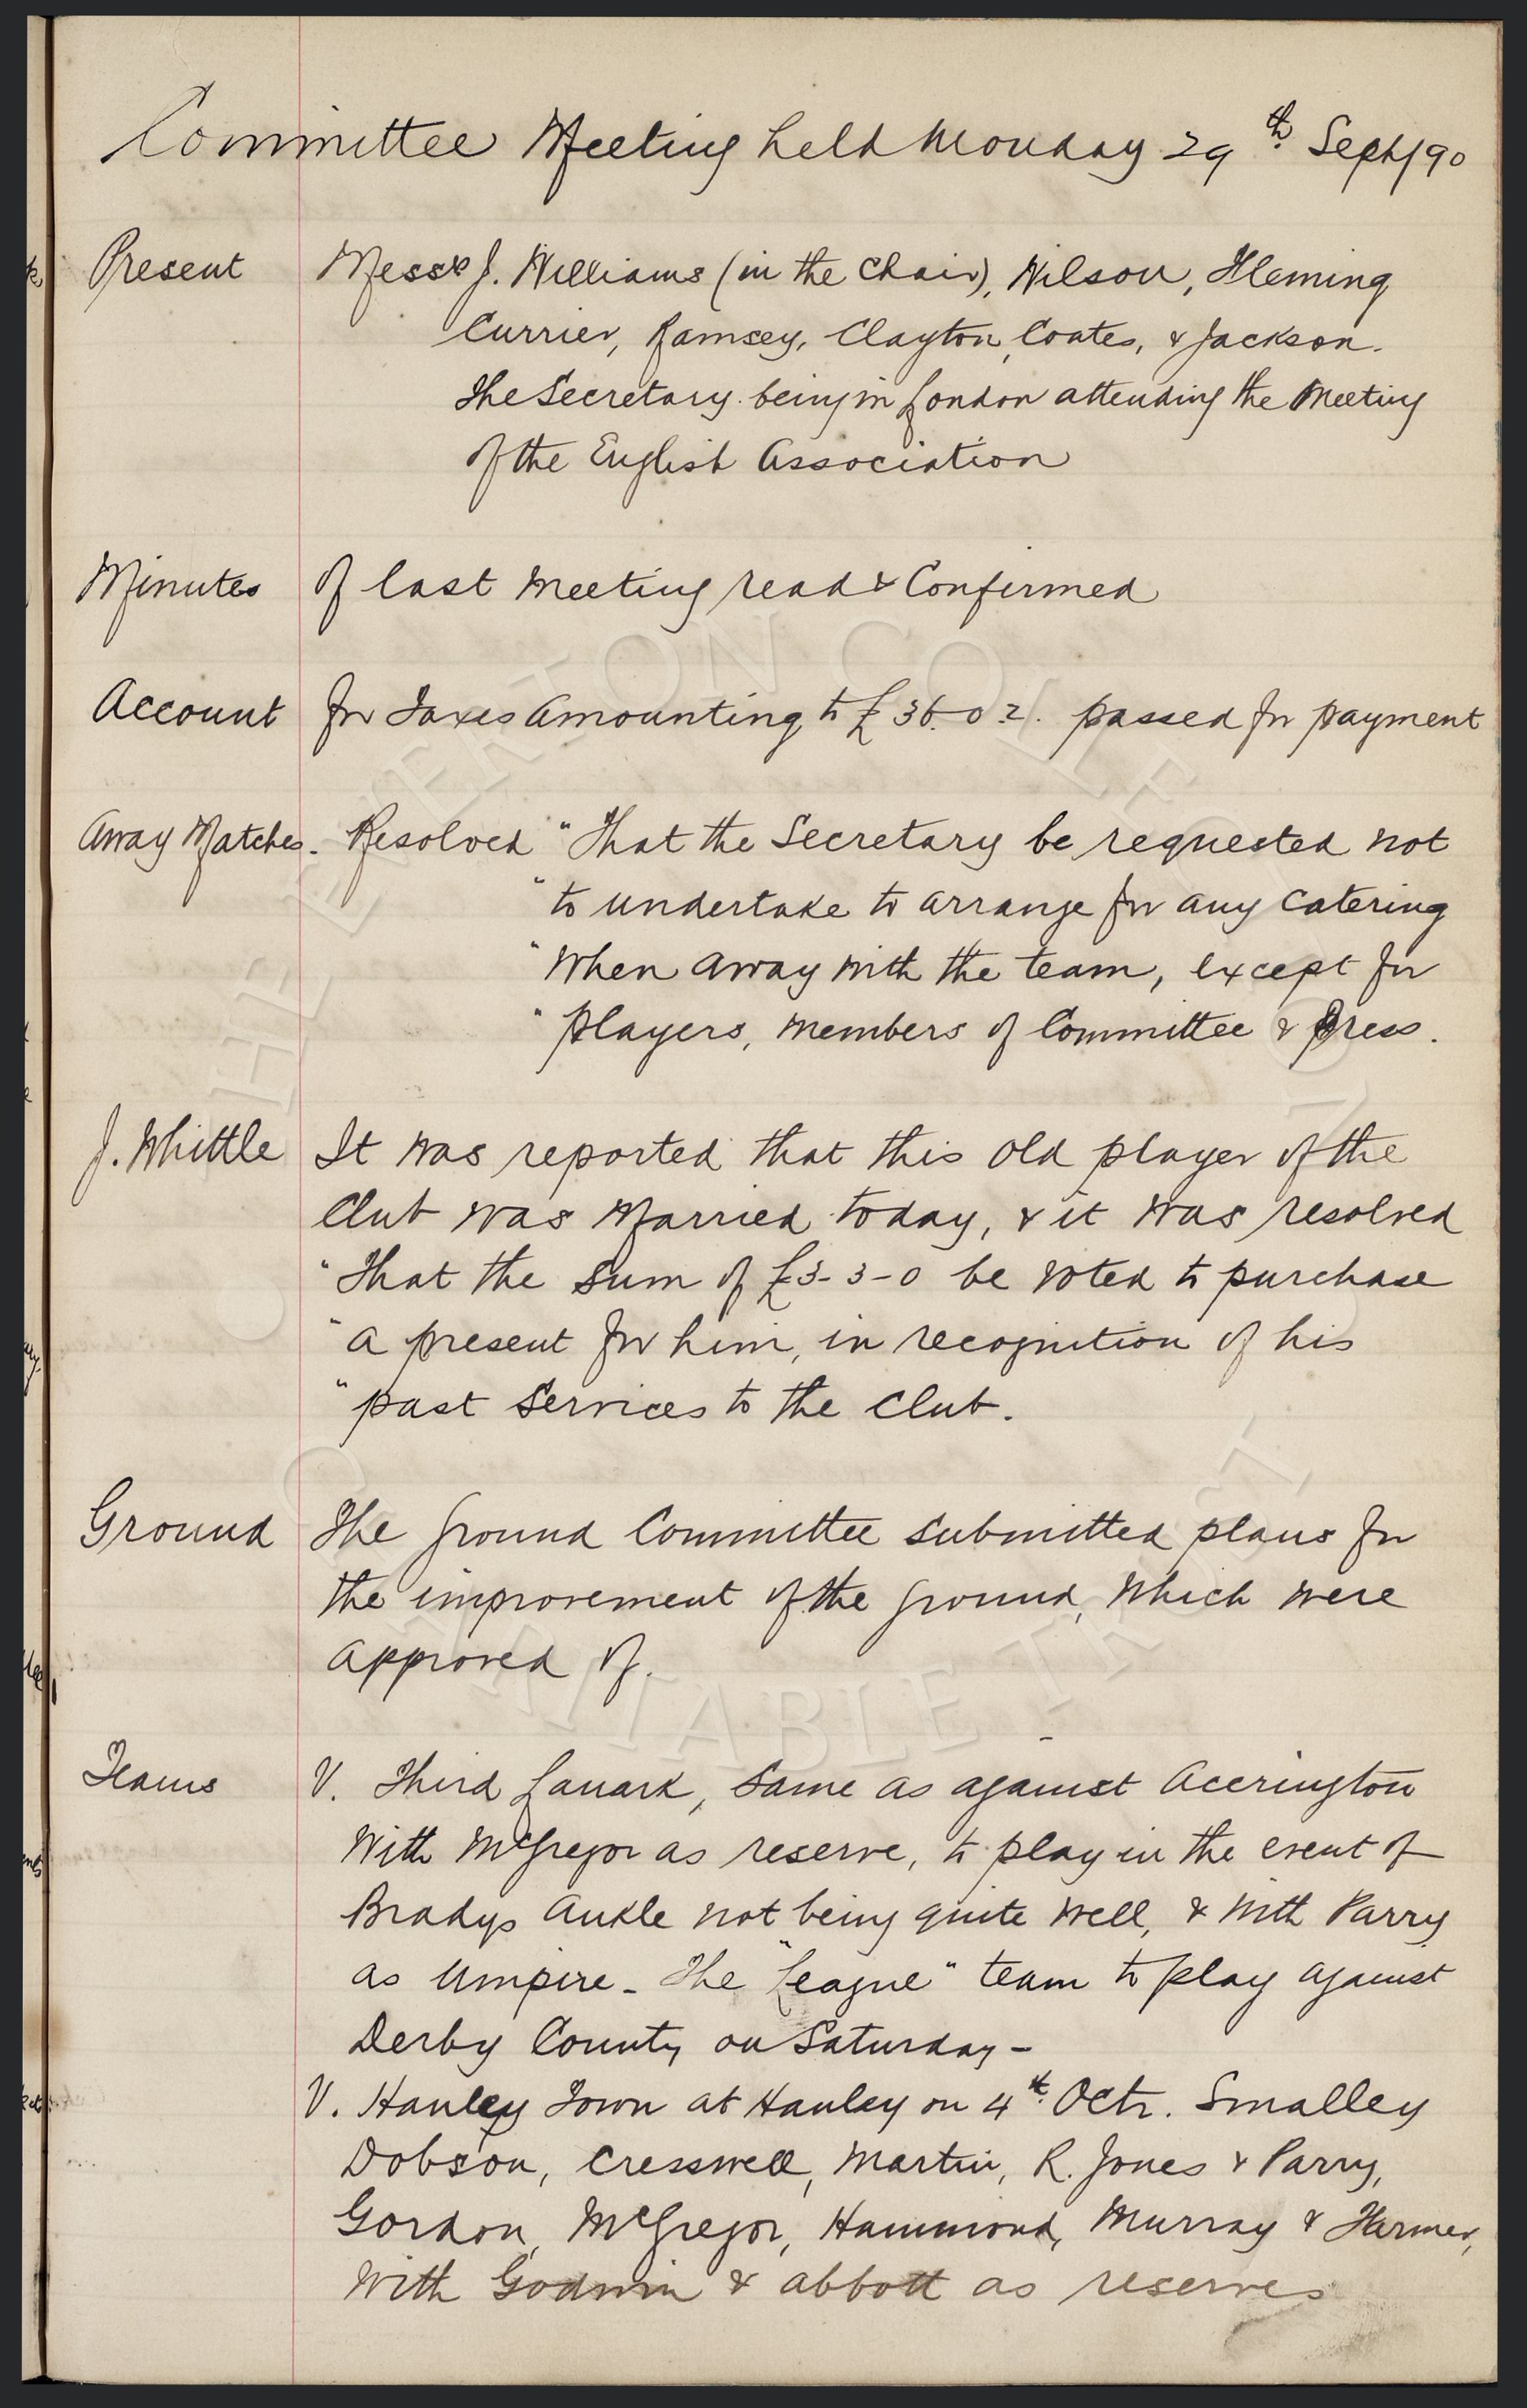 Committee Meeting held Monday 29th Sept/90
Present Messrs J. Williams (in the Chair), Wilson, Fleming
Currier, Ramsey, Clayton, Coates, & Jackson.
The Secretary being in London attending the Meeting
of the English Association
Minutes of last Meeting read & Confirmed
Account for Taxes amounting to £36.0.2. passed for payment
Away Matches. Resolved "That the Secretary be requested not
" to undertake to arrange for any Catering
" When away with the team, except for
" players, members of Committee & Press.
J. Whittle It was reported that this old player of the
Club was Married today, & it was resolved
"That the sum of £3-3-0 be voted to purchase
" a present for him, in recognition of his
" past Services to the Club.
Ground The Ground Committee submitted plans for
the improvement of the ground, which were
approved of.
Teams V. Third Lanark, Same as against Accrington
With McGregor as reserve, to play in the event of
Bradys Ankle not being quite well, & with Parry
as Umpire - The "League" team to play against
Derby County on Saturday -
V. Hanley Town at Hanley on 4th Octr. Smalley
Dobson, Cresswell, Martin, R. Jones & Parry,
Gordon, McGregor, Hammond, Murray & Harmer,
With Godwin & abbott as reserves
THE EVERTON COLLECTION
CHARITABLE TRUST